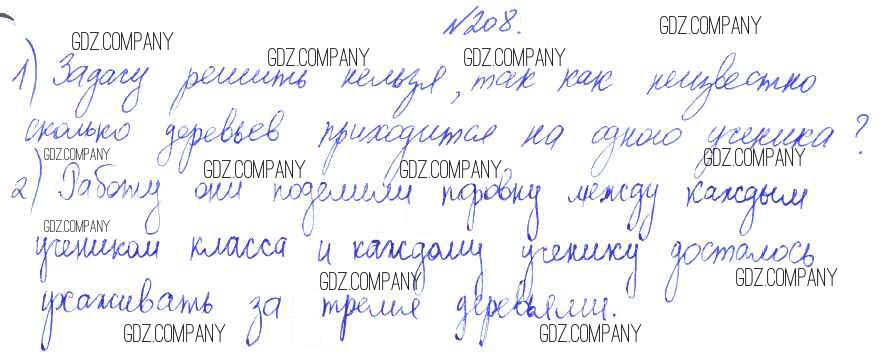 №208.
1) Задачу решить нельзя, так как неизвестно
сколько деревьев приходится на одного ученика?
2) Работу они поделили поровну между каждым
учеником класса и каждому ученику досталось
ухаживать за тремя деревьями.
GDZ.COMPANY
GDZ.COMPANY
GDZ.COMPANY
GDZ.COMPANY
GDZ.COMPANY
GDZ.COMPANY
GDZ.COMPANY
GDZ.COMPANY
GDZ.COMPANY
GDZ.COMPANY
GDZ.COMPANY
GDZ.COMPANY
GDZ.COMPANY